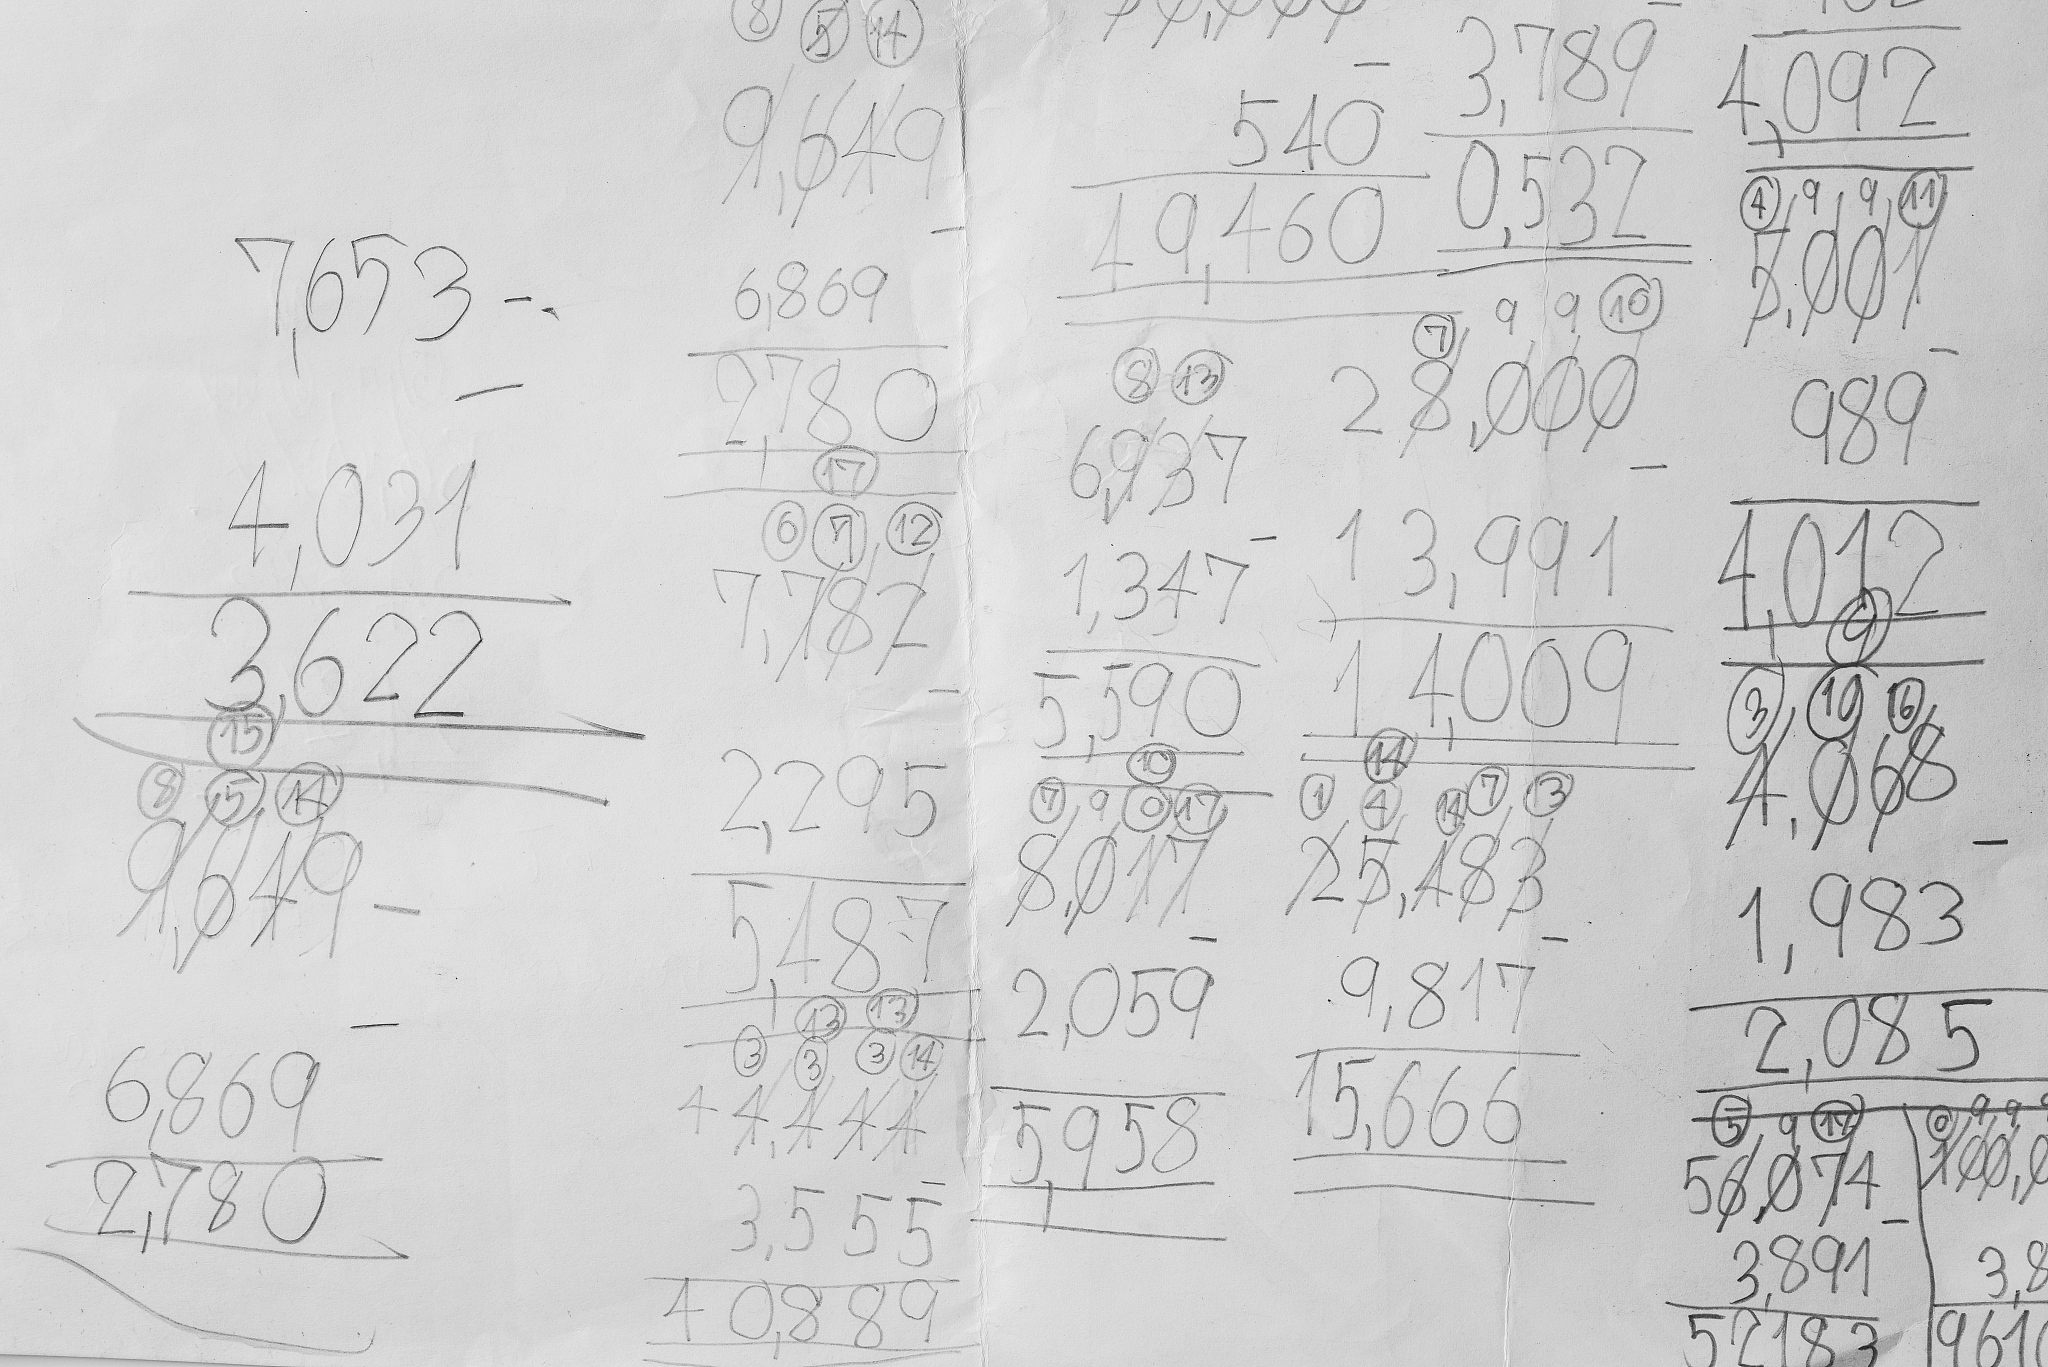 7,653 -
-
4,031
3,622
15
8 5 14
9,649 -
-
6,869
2,780
8 5 14
9,649
-
6,869
2,780
17
6 7 12
7,782
-
2,295
5,487
13 13
3 3 3 14
44,444
-
3,555
40,889
-
540
49,460
8 13
6,937
-
1,347
5,590
10
7 9 0 17
8,017
-
2,059
5,958
-
3,789
0,532
7 9 9 10
28,000
-
13,991
14,009
14
1 4 14 7 13
25,483
-
9,817
15,666
4,092
4 9 9 11
5,001
-
989
4,012
9
3 10 16
4,068
-
1,983
2,085
5 9 17
56,074
-
3,891
52,183
0 9 9 9
100,0
3,8
961